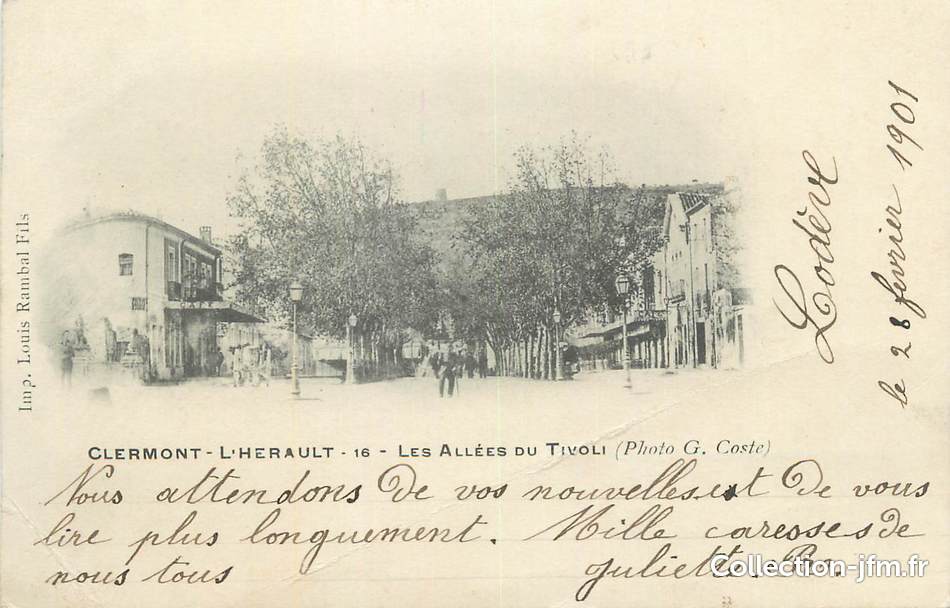 Imp. Louis Rambal Fils
Lodève
le 28 février 1901
CLERMONT-L'HERAULT - 16 - LES ALLÉES DU TIVOLI (Photo G. Coste)
Nous attendons de vos nouvelles et de vous
lire plus longuement. Mille caresses de
nous tous Juliette
Collection-jfm.fr